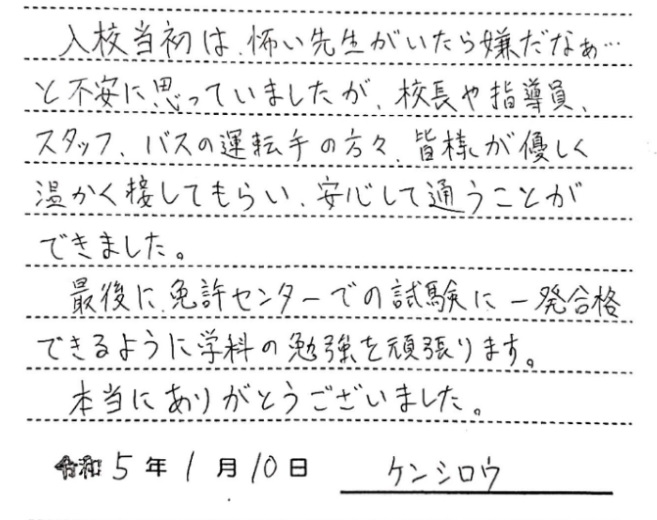 入校当初は、怖い先生がいたら嫌だなぁ…
と不安に思っていましたが、校長や指導員、
スタッフ、バスの運転手の方々、皆様が優しく
温かく接してもらい、安心して通うことが
できました。
最後に、免許センターでの試験に一発合格
できるように学科の勉強を頑張ります。
本当にありがとうございました。
令和5年1月10日 ケンシロウ